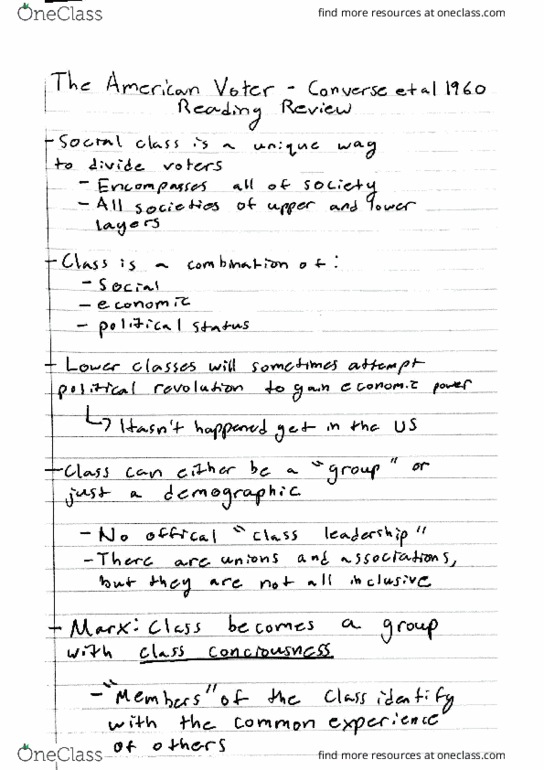 OneClass
find more resources at oneclass.com
The American Voter - Converse et al 1960
Reading Review
- Social class is a unique way
to divide voters
- Encompasses all of society
- All societies of upper and lower
layers
- Class is a combination of:
- Social
- economic
- political status
- Lower classes will sometimes attempt
political revolution to gain economic power
↳ Hasn't happened yet in the US
- Class can either be a "group" or
just a demographic
- No offical "class leadership"
- There are unions and associations,
but they are not all inclusive
- Marx: Class becomes a group
with class conciousness
- "Members" of the class identify
with the common experience
of others
OneClass
find more resources at oneclass.com